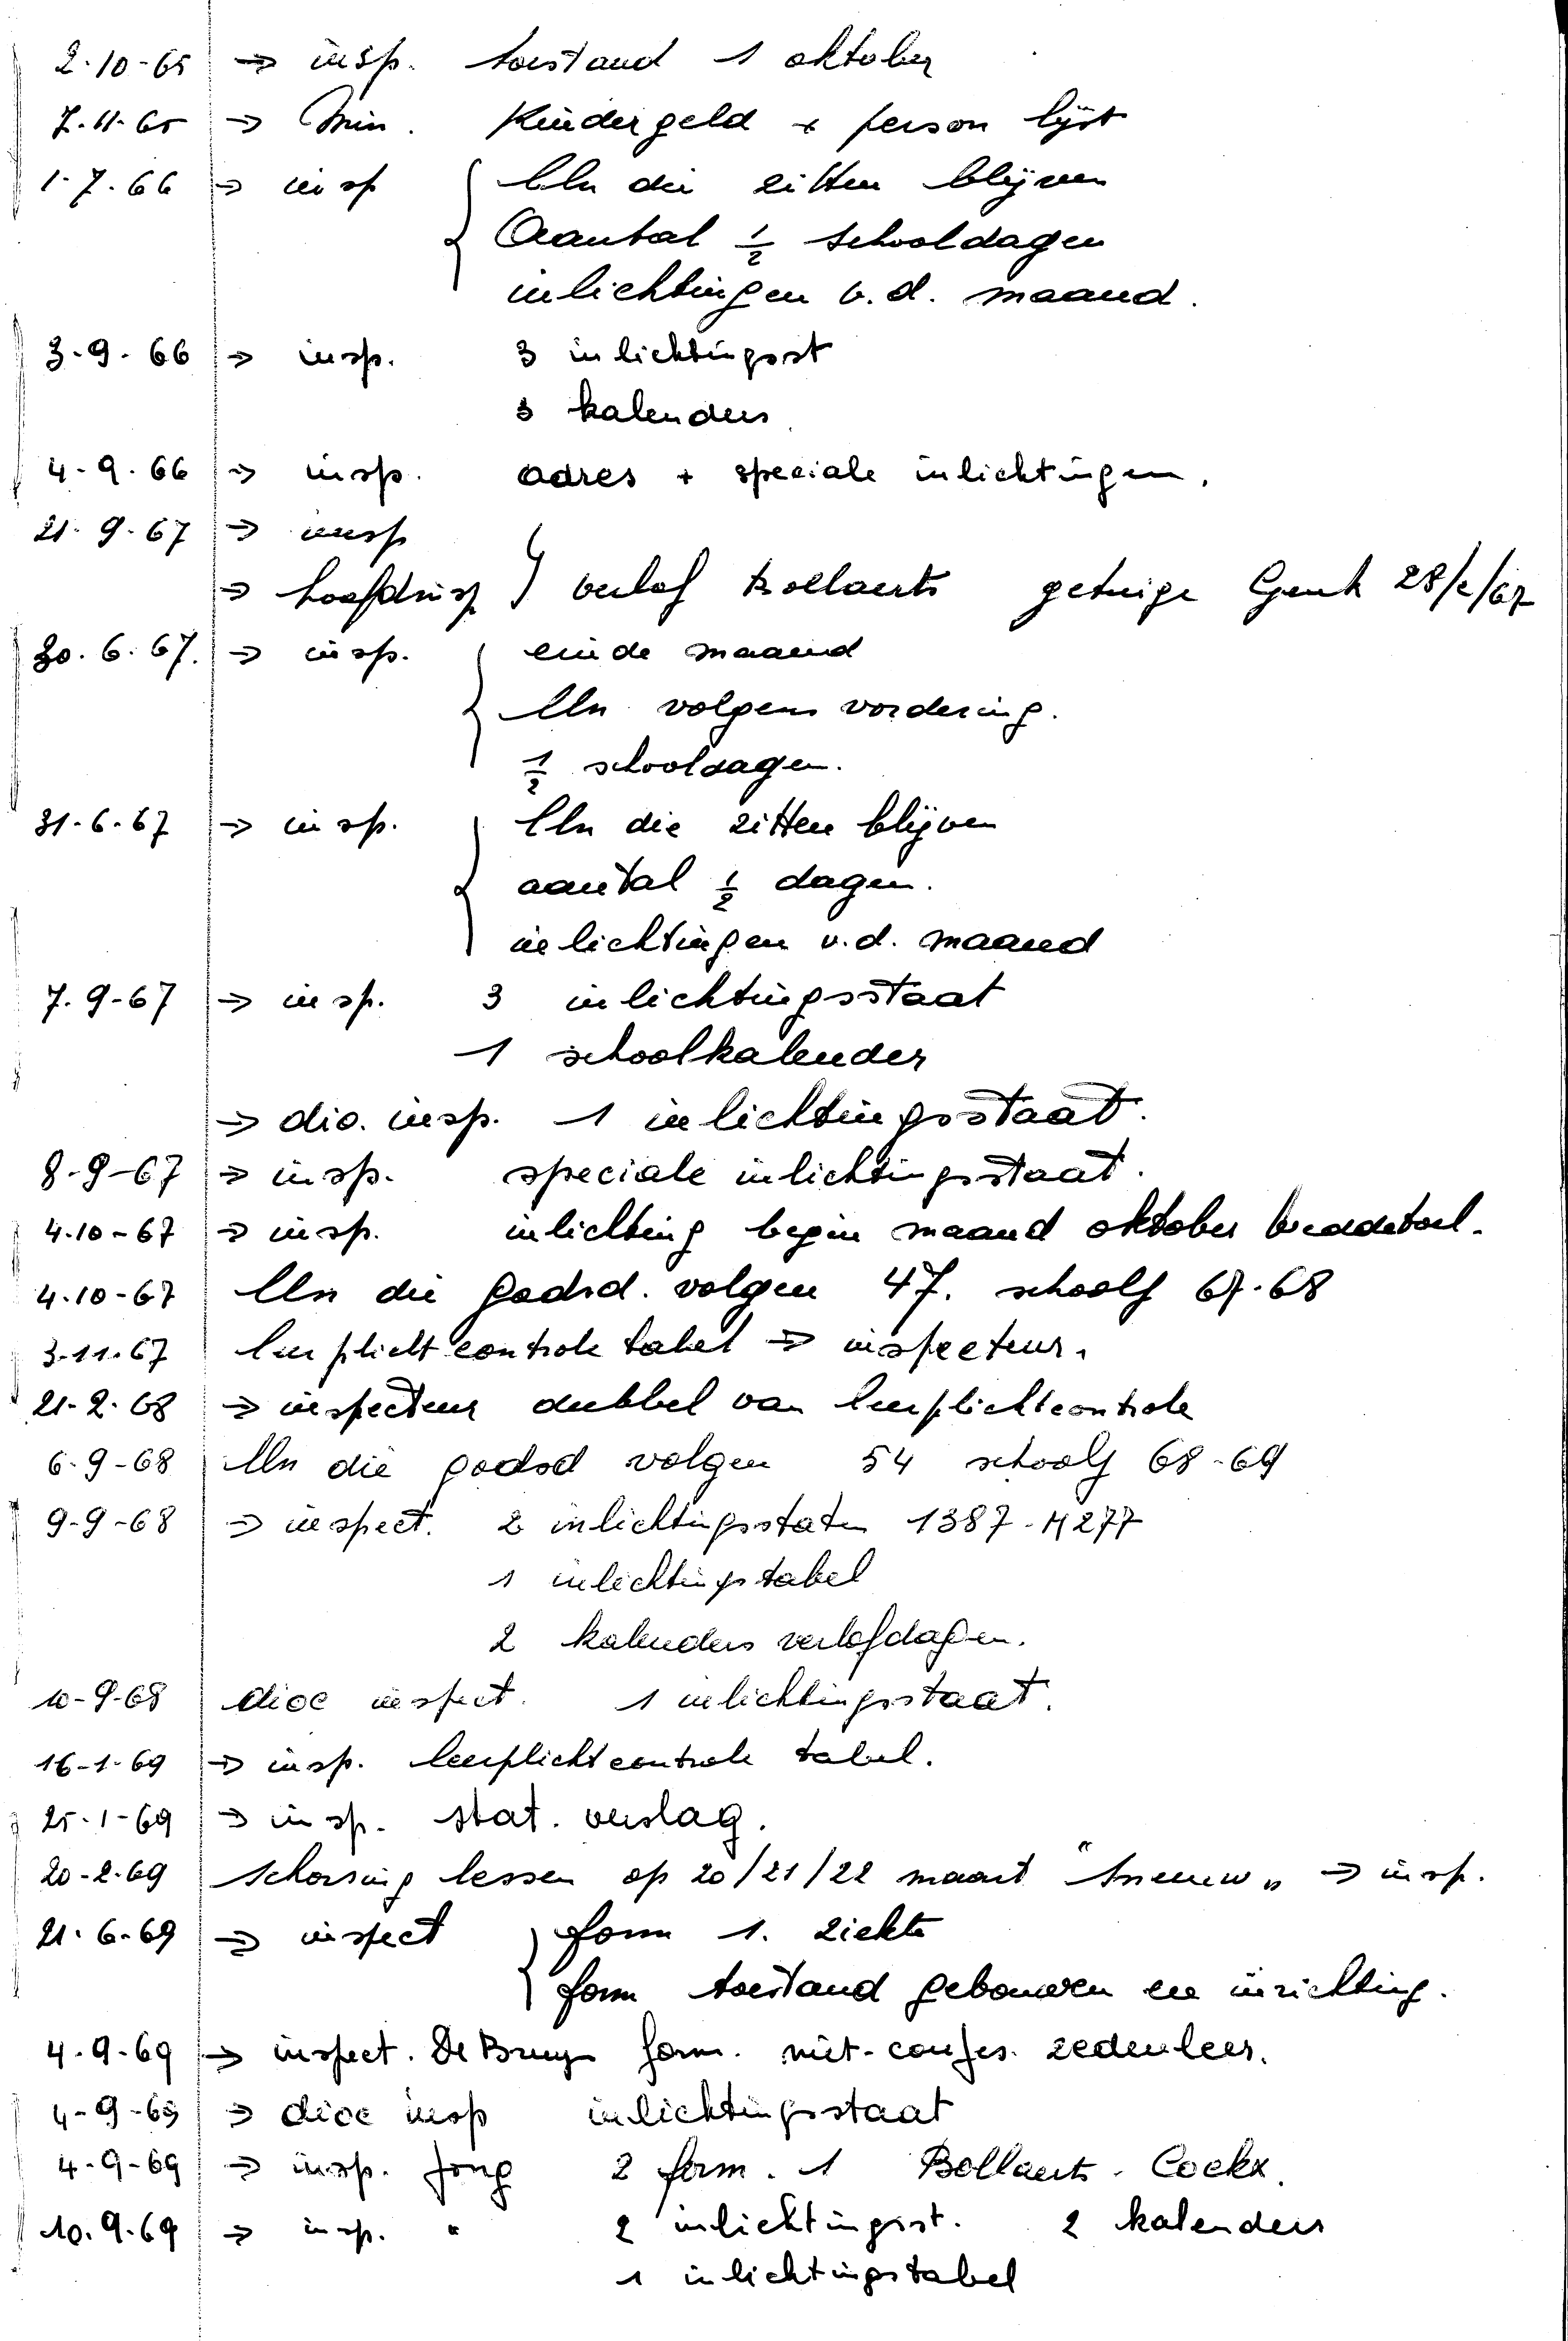 2-10-65 → insp. toestand 1 oktober
7-11-65 → Min. Kindergeld + person lijst
1-7-66 → insp { lln die zitten blijven
Aantal 1/2 schooldagen
inlichtingen v.d. maand.
3-9-66 → insp. 3 inlichtingsst
3 kalenders
4-9-66 → insp. adres + speciale inlichtingen.
21-9-67 → insp
→ hoofdinsp } verlof Bollaerts getuige Genk 28/2/67
30.6.67. → insp. { einde maand
lln volgens vordering.
1/2 schooldagen.
31-6-67 → insp. { lln die zitten blijven
aantal 1/2 dagen.
inlichtingen v.d. maand
7.9-67 → insp. 3 inlichtingsstaat
1 schoolkalender
→ dio. insp. 1 inlichtingsstaat.
8-9-67 → insp. speciale inlichtingsstaat.
4.10-67 → insp. inlichting begin maand oktober weddetoel.
4.10-67 lln die godsd. volgen 47. schoolj 67-68
3-11-67 leerplicht controle tabel → inspecteur.
21-2-68 → inspecteur dubbel van leerplichtcontrole
6-9-68 lln die godsd volgen 54 schoolj 68-69
9-9-68 → inspect. 2 inlichtingsstaten 1387-4277
1 inlichtingstabel
2 kalenders verlofdagen.
10-9-68 dioc inspect. 1 inlichtingsstaat.
16-1-69 → insp. leerplichtcontrole tabel.
25-1-69 → insp. stat. verslag.
20-2-69 schorsing lessen op 20/21/22 maart "sneeuw„ → insp.
21-6-69 → inspect { form 1. ziekte
form toestand gebouwen en inrichting.
4-9-69 → inspect. De Bruyn form. niet-confes. zedenleer.
4-9-69 → dioc insp inlichtingsstaat
4-9-69 → insp. Jong 2 form. 1 Bollaerts - Cockx.
10.9.69 → insp. " 2 inlichtingsst. 2 kalenders
1 inlichtingstabel